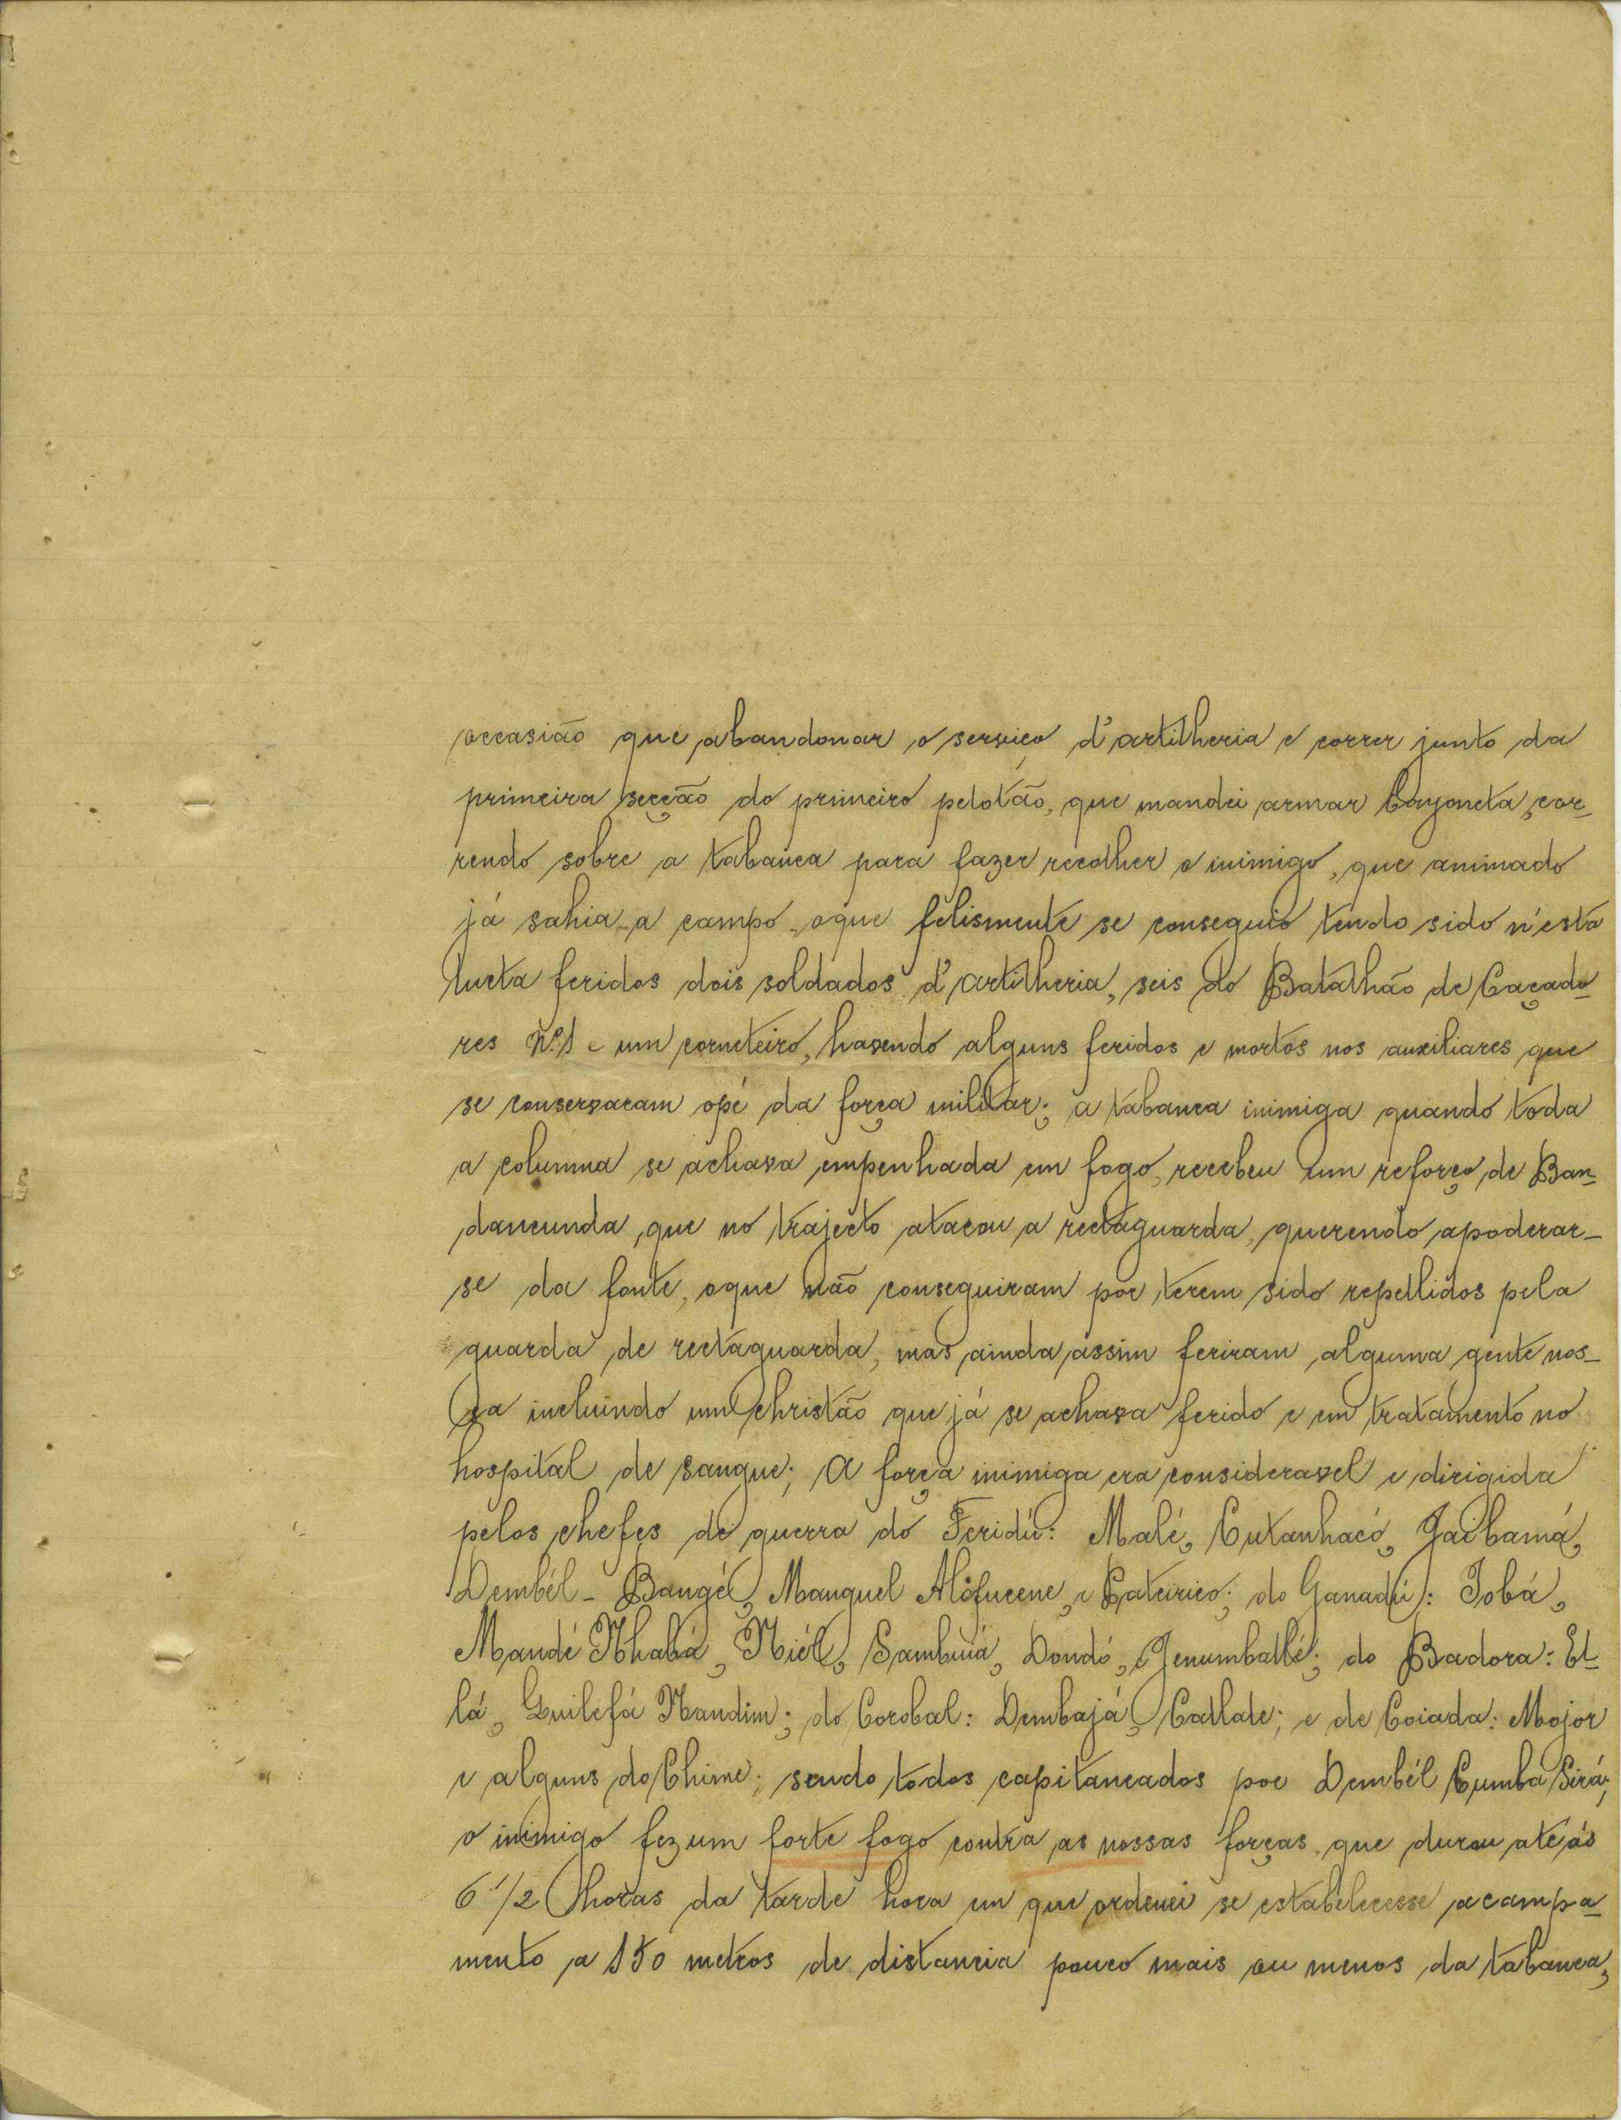 occasião que abandonar o serviço d'artilheria e correr junto da
primeira secção do primeiro pelotão, que mandei armar bayoneta, cor-
rendo sobre a tabanca para fazer recolher o inimigo, que animado
já sahia a campo, oque felismente se conseguio tendo sido n'esta
lucta feridos dois soldados d'artilheria, seis do Batalhão de Caçado-
res Nº1 e um corneteiro, havendo alguns feridos e mortos nos auxiliares que
se conservaram opé da força militar; a tabanca inimiga quando toda
a columna se achava empenhada em fogo, recebeu um reforço de Ban-
dancunda, que no trajecto atacou a rectaguarda, querendo apoderar-
se da fonte, oque não conseguiram por terem sido repellidos pela
guarda de rectaguarda, mas ainda assim feriram alguma gente nos-
sa incluindo um christão que já se achava ferido e em tratamento no
hospital de sangue; A força inimiga era consideravel e dirigida
pelos chefes de guerra do Feridú: Malé, Cutanhacó, Jaibamá,
Dembél-Bangél, Manguel Alófucene, e Pateirico; do Ganadú: Jobá,
Mandé Nhabá, Niél, Sambuiá, Dondó, e Jenumballé; do Badora: El-
lá, Guilefá Nandim; do Corobal: Dembajá, Callale; e de Coiada: Mojor
e alguns do Chime; sendo todos capitaneados por Dembél Cumba Sirá;
o inimigo fez um forte fogo contra as nossas forças, que durou até ás
6 1/2 horas da tarde hora em que ordenei se estabelecesse acampa-
mento a 150 metros de distancia pouco mais ou menos da tabanca,